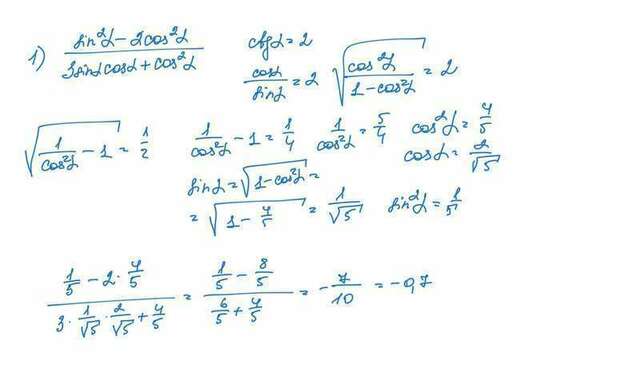 1) (sin²α − 2cos²α)/(3sinα cosα + cos²α)   ctgα = 2
cosα/sinα = 2   √(cos²α/(1 − cos²α)) = 2
√(1/cos²α − 1) = 1/2   1/cos²α − 1 = 1/4   1/cos²α = 5/4   cos²α = 4/5
cosα = 2/√5
sinα = √(1 − cos²α) =
= √(1 − 4/5) = 1/√5   sin²α = 1/5
(1/5 − 2 · 4/5)/(3 · 1/√5 · 2/√5 + 4/5) = (1/5 − 8/5)/(6/5 + 4/5) = −7/10 = −0,7